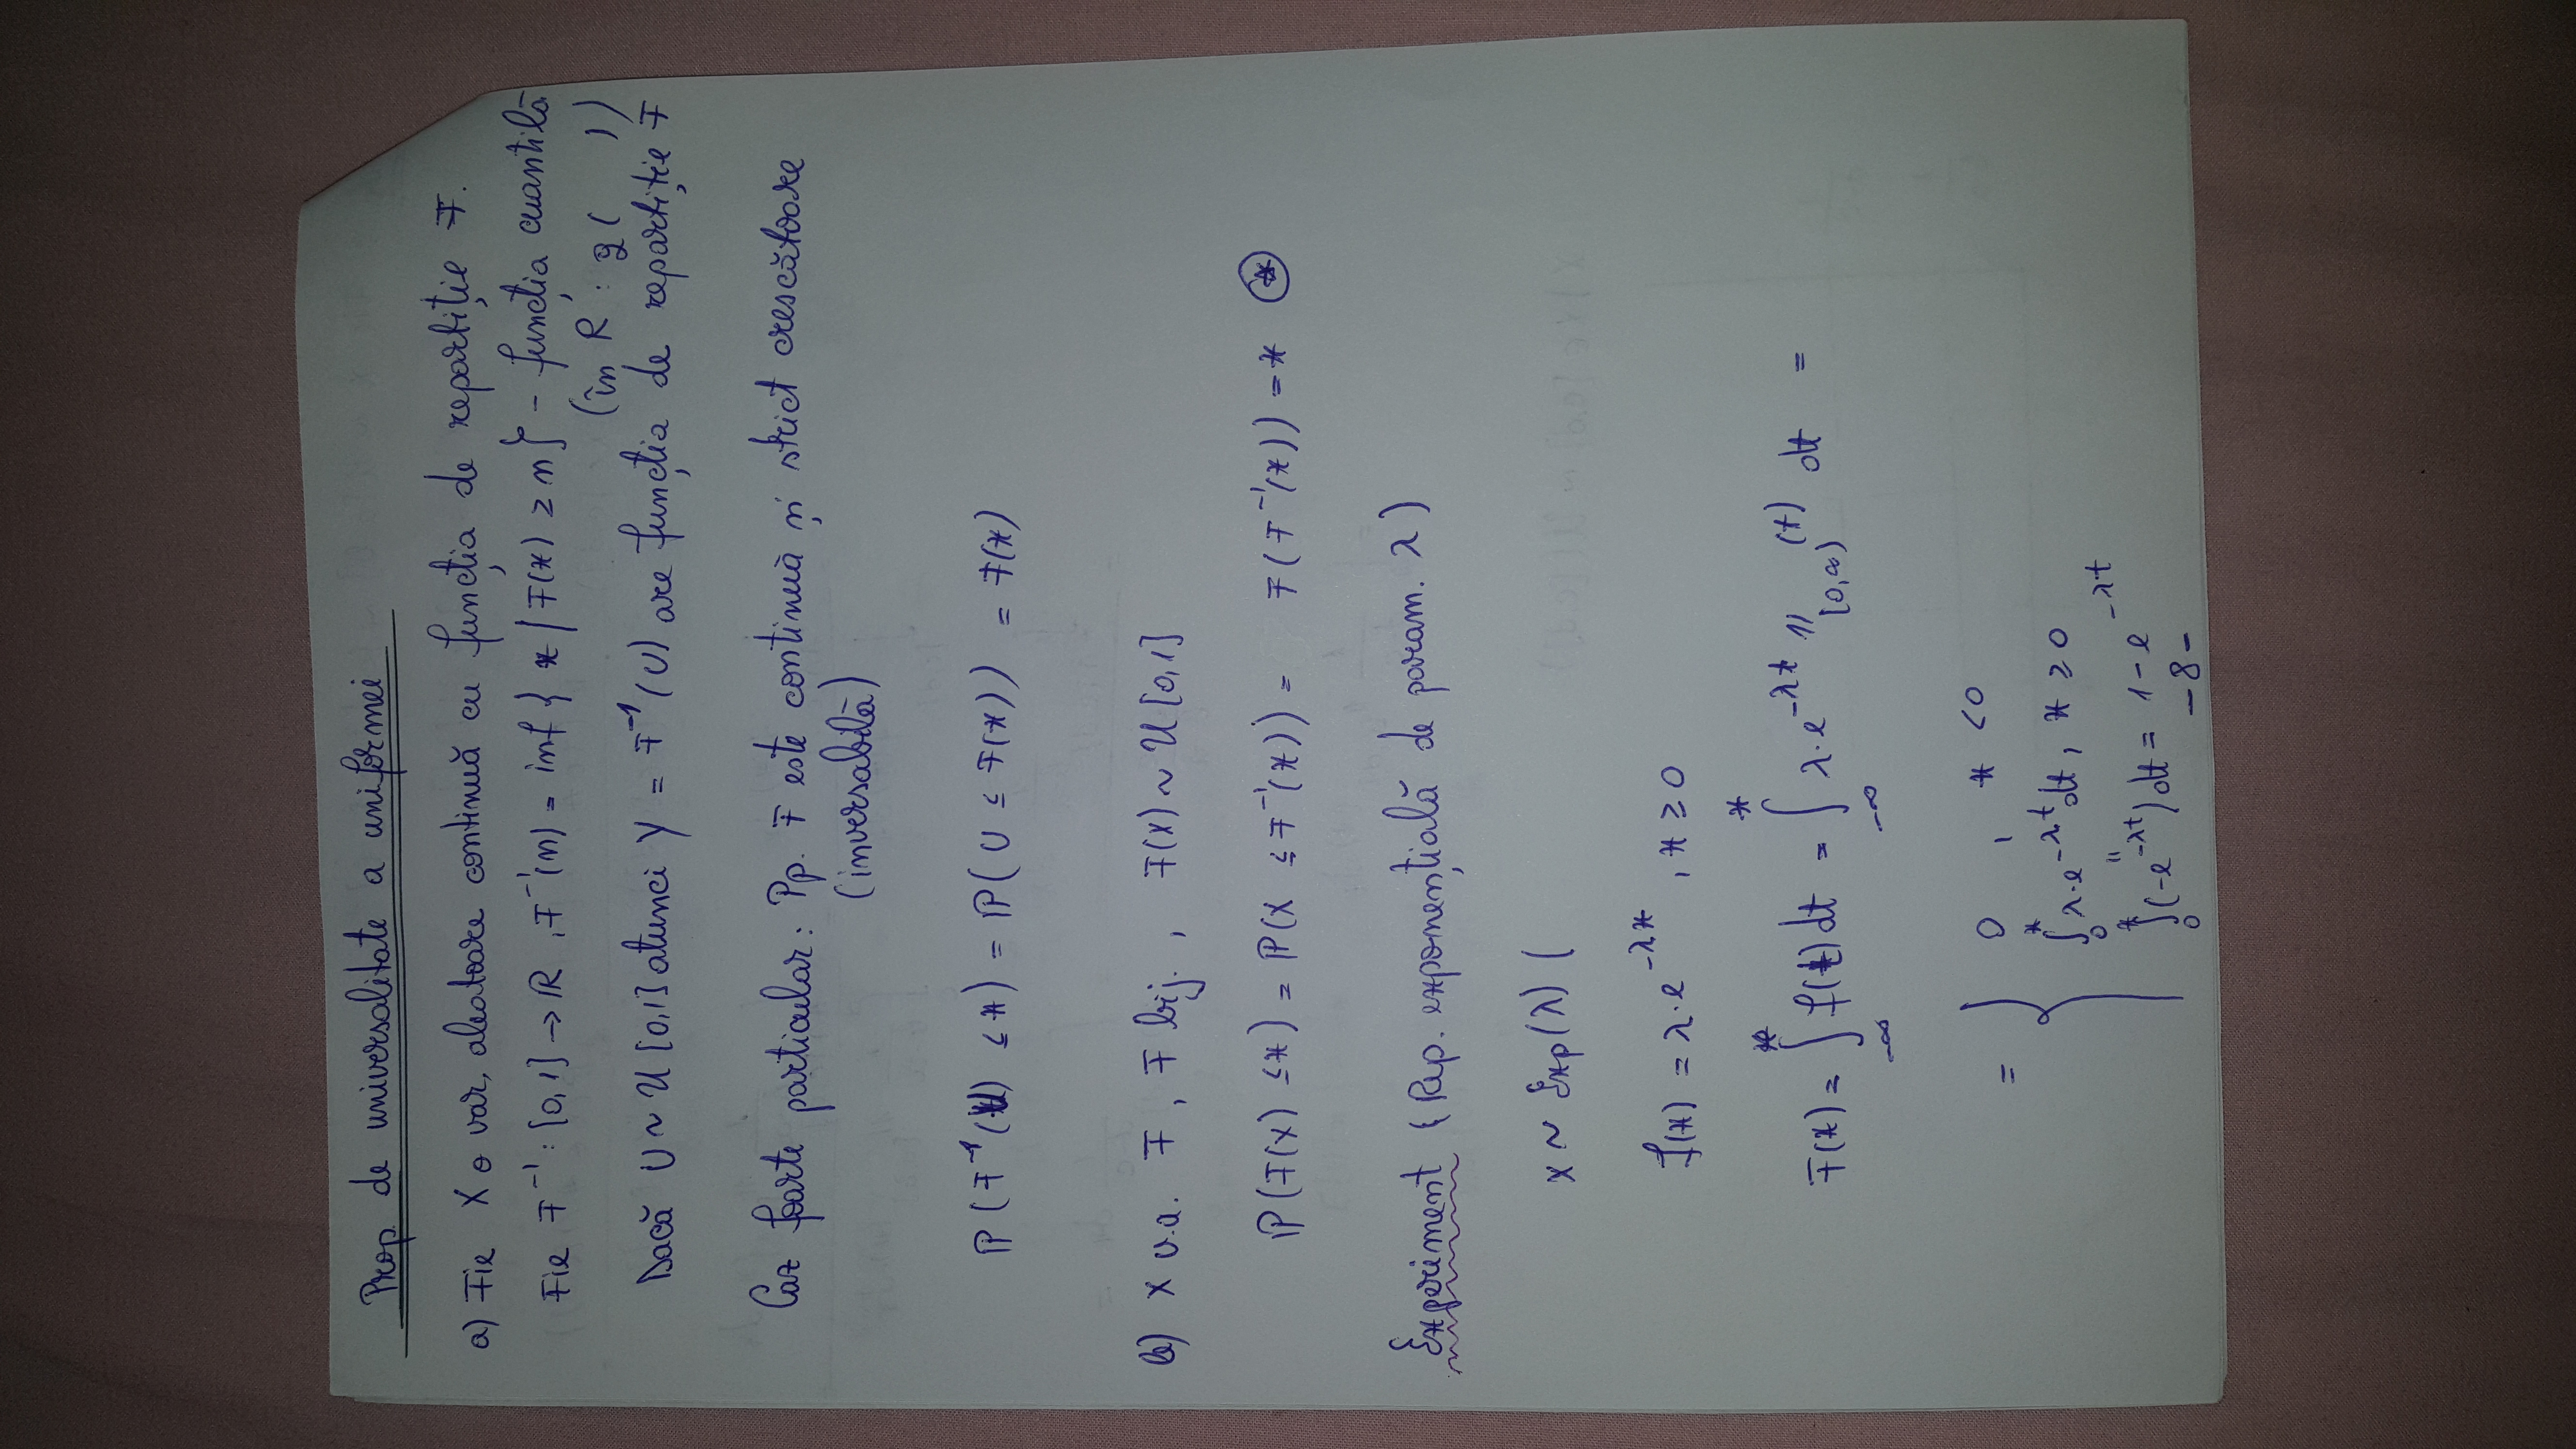 Prop. de universalitate a uniformei
a) Fie X o var. aleatoare continuă cu funcția de repartiție F.
Fie F⁻¹ : [0,1] → ℝ , F⁻¹(u) = inf { x / F(x) ≥ u } - funcția cuantilă
(în R : q(   ))
Dacă U ~ U[0,1] atunci Y = F⁻¹(U) are funcția de repartiție F
Caz foarte particular: Pp. F este continuă și strict crescătoare
(inversabilă)
ℙ(F⁻¹(U) ≤ x) = ℙ(U ≤ F(x)) = F(x)
b) X v.a. F , F bij. , F(X) ~ U[0,1]
ℙ(F(X) ≤ x) = ℙ(X ≤ F⁻¹(x)) = F(F⁻¹(x)) = x ⊛
Experiment (Rep. exponențială de param. λ)
X ~ Exp(λ) (
f(x) = λ·e^{-λx} , x ≥ 0
F(x) = ∫_{-∞}^{x} f(t) dt = ∫_{-∞}^{x} λ·e^{-λt} 𝟙_{[0,∞)}(t) dt =
= { 0 , x < 0
∫_0^x λ·e^{-λt} dt , x ≥ 0
"
∫_0^x (-e^{-λt}) dt = 1 - e^{-λt}
-8-